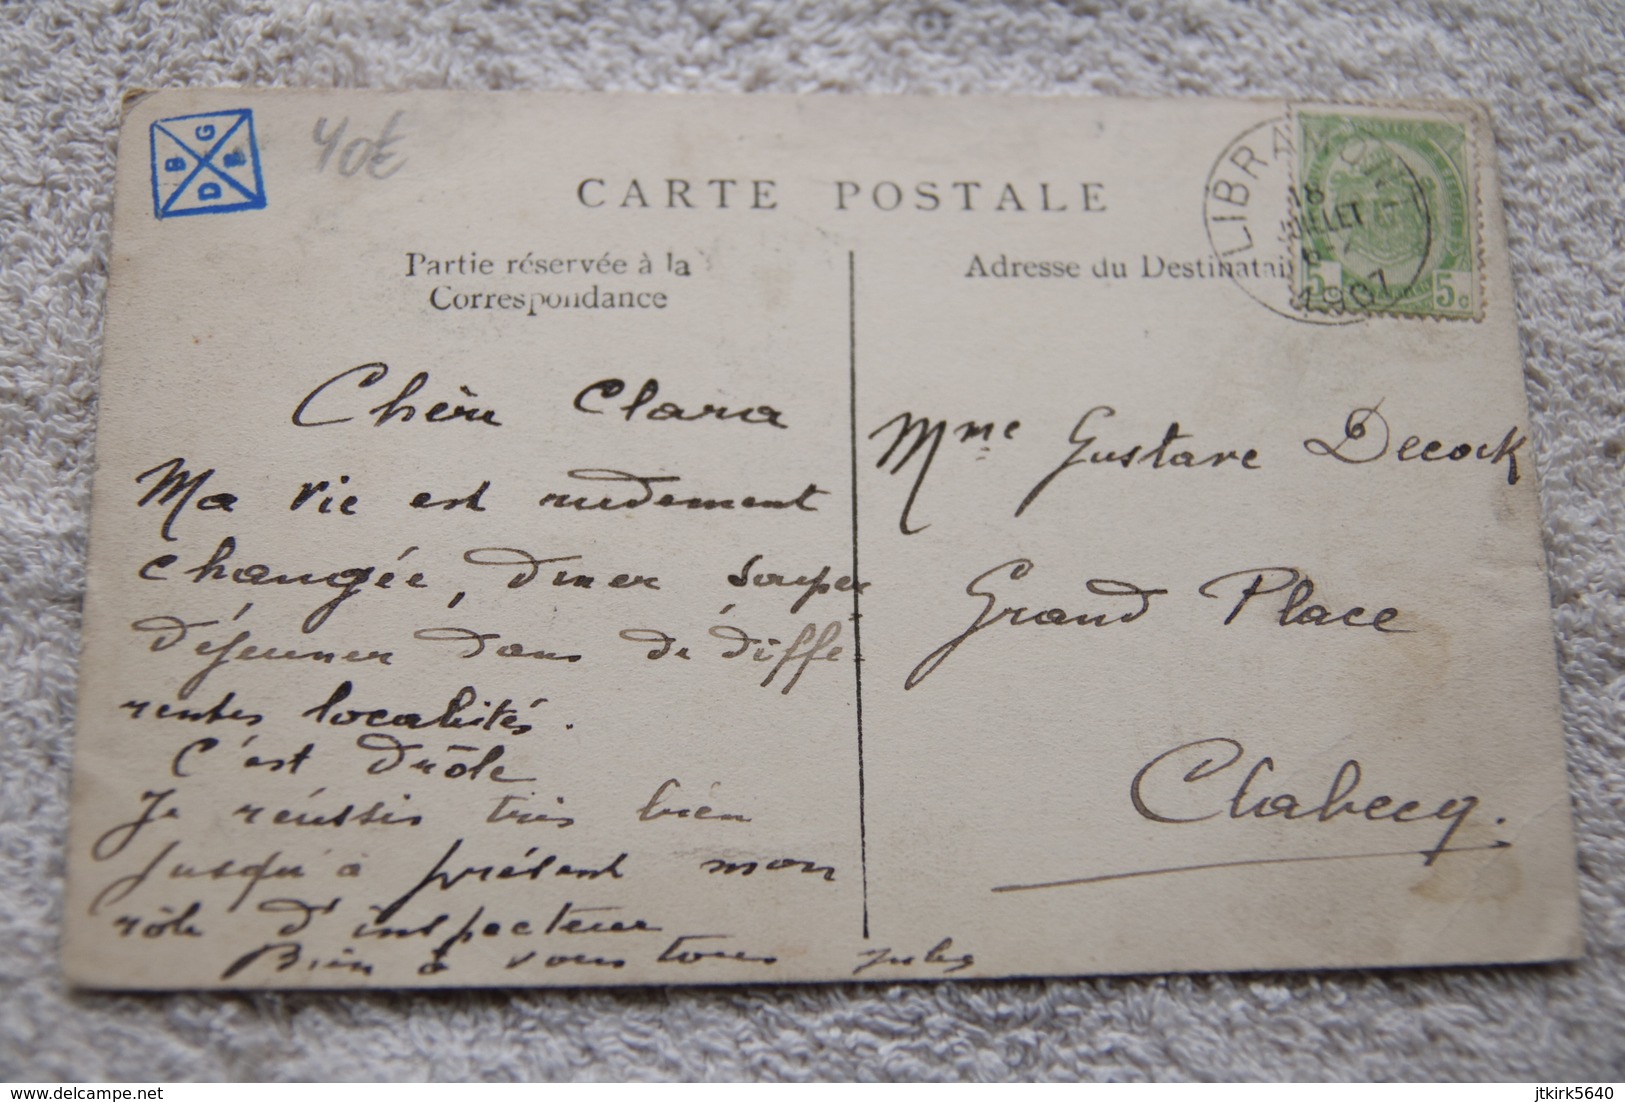 B G R D
40€
CARTE POSTALE
LIBRAMONT
18
JUILLET
6
1907
5 5c
Partie réservée à la
Correspondance
Adresse du Destinatai
Chère Clara
Ma vie est rudement
changée, diner souper
déjeuner dans de diffé-
rentes localités.
C'est drôle
Je réussis très bien
jusqu'à présent mon
rôle d'inspecteur
Bien à vous tous Jules
Mme Gustave Decock
Grand Place
Chabecq.
delcampe.net
jtkirk5640